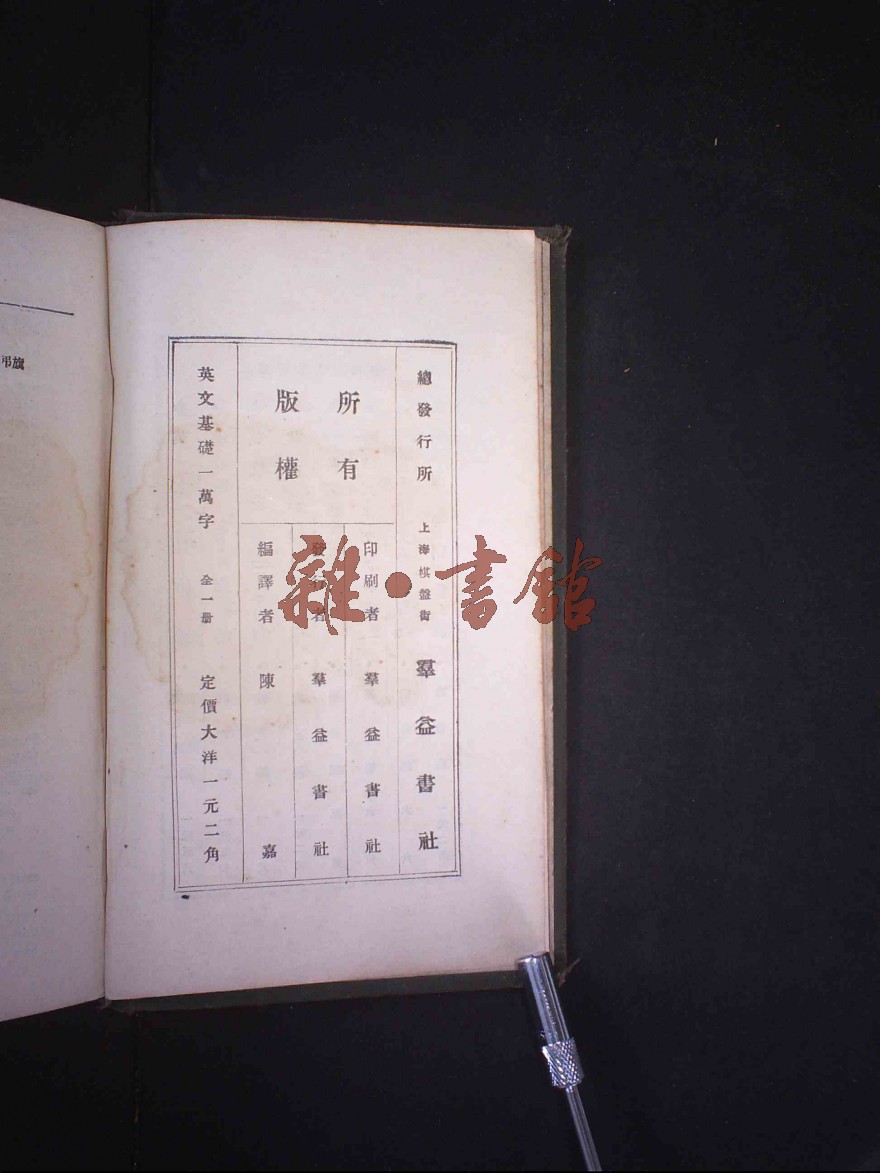 總發行所 上海棋盤街 羣益書社
所有
版權
印刷者 羣益書社
發行者 羣益書社
編譯者 陳嘉
英文基礎一萬字 全一册 定價大洋一元二角
弔旗
雜·書館